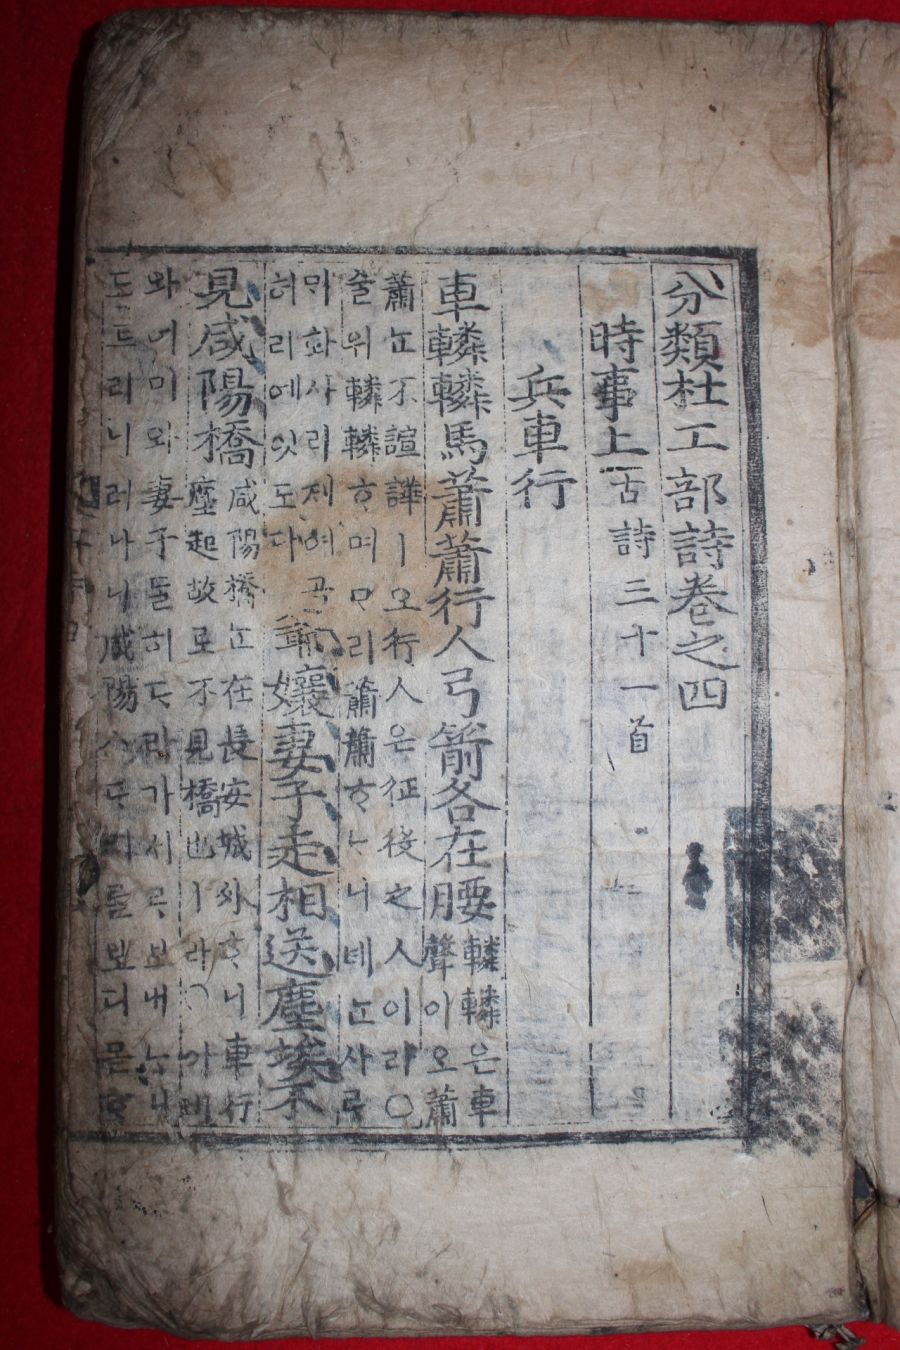 分類杜工部詩卷之四
時事上 古詩三十一首
兵車行
車轔轔馬蕭蕭行人弓箭各在腰 轔轔은車
聲이오蕭
蕭는不諠譁ㅣ오行人은征役之人이라○
술위轔轔ᄒᆞ며ᄆᆞ리蕭蕭ᄒᆞᄂᆞ니녀는사ᄅᆞ
ᄆᆡ화사리제여곰
허리예잇도다
爺孃妻子走相送塵埃不
見咸陽橋 咸陽橋는在長安城外ᄒᆞ니車行
塵起故로不見橋也ㅣ라○아비
와어미와妻子돌히ᄃᆞ라가서ᄅᆞ보내ᄂᆞ니
드트리니러나니咸陽ㅅᄃᆞ리ᄅᆞᆯ보디몯ᄒᆞ